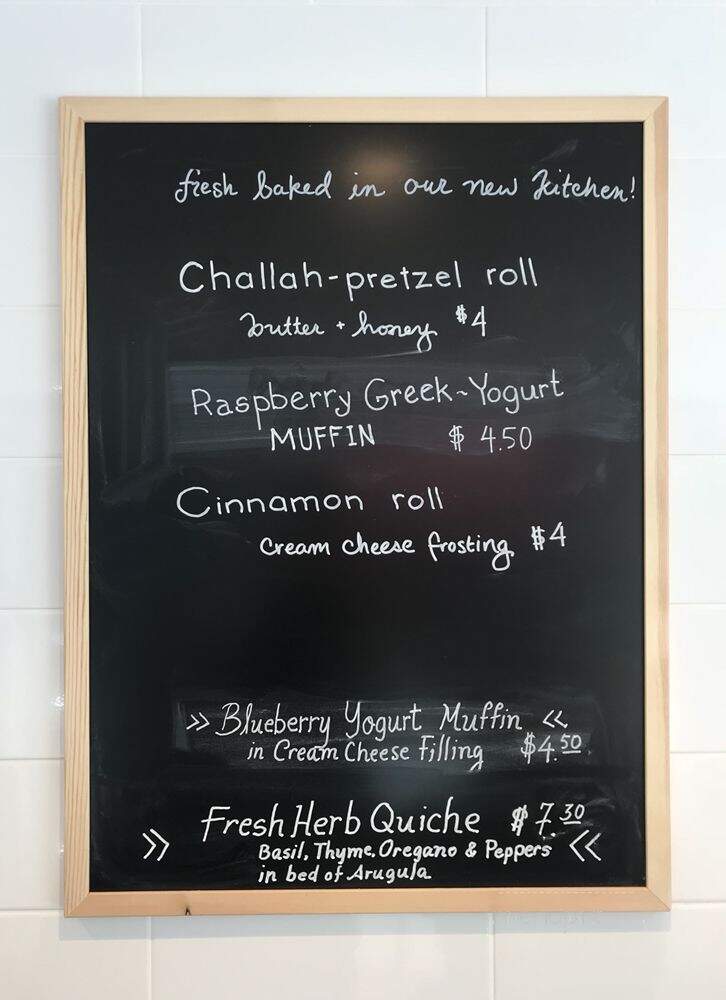 fresh baked in our new kitchen!
Challah-pretzel roll
butter + honey $4
Raspberry Greek-Yogurt
MUFFIN $ 4.50
Cinnamon roll
Cream cheese frosting $4
>> Blueberry Yogurt Muffin <<
in Cream Cheese Filling $4.50
Fresh Herb Quiche $7.30
>> Basil, Thyme, Oregano & Peppers <<
in bed of Arugula